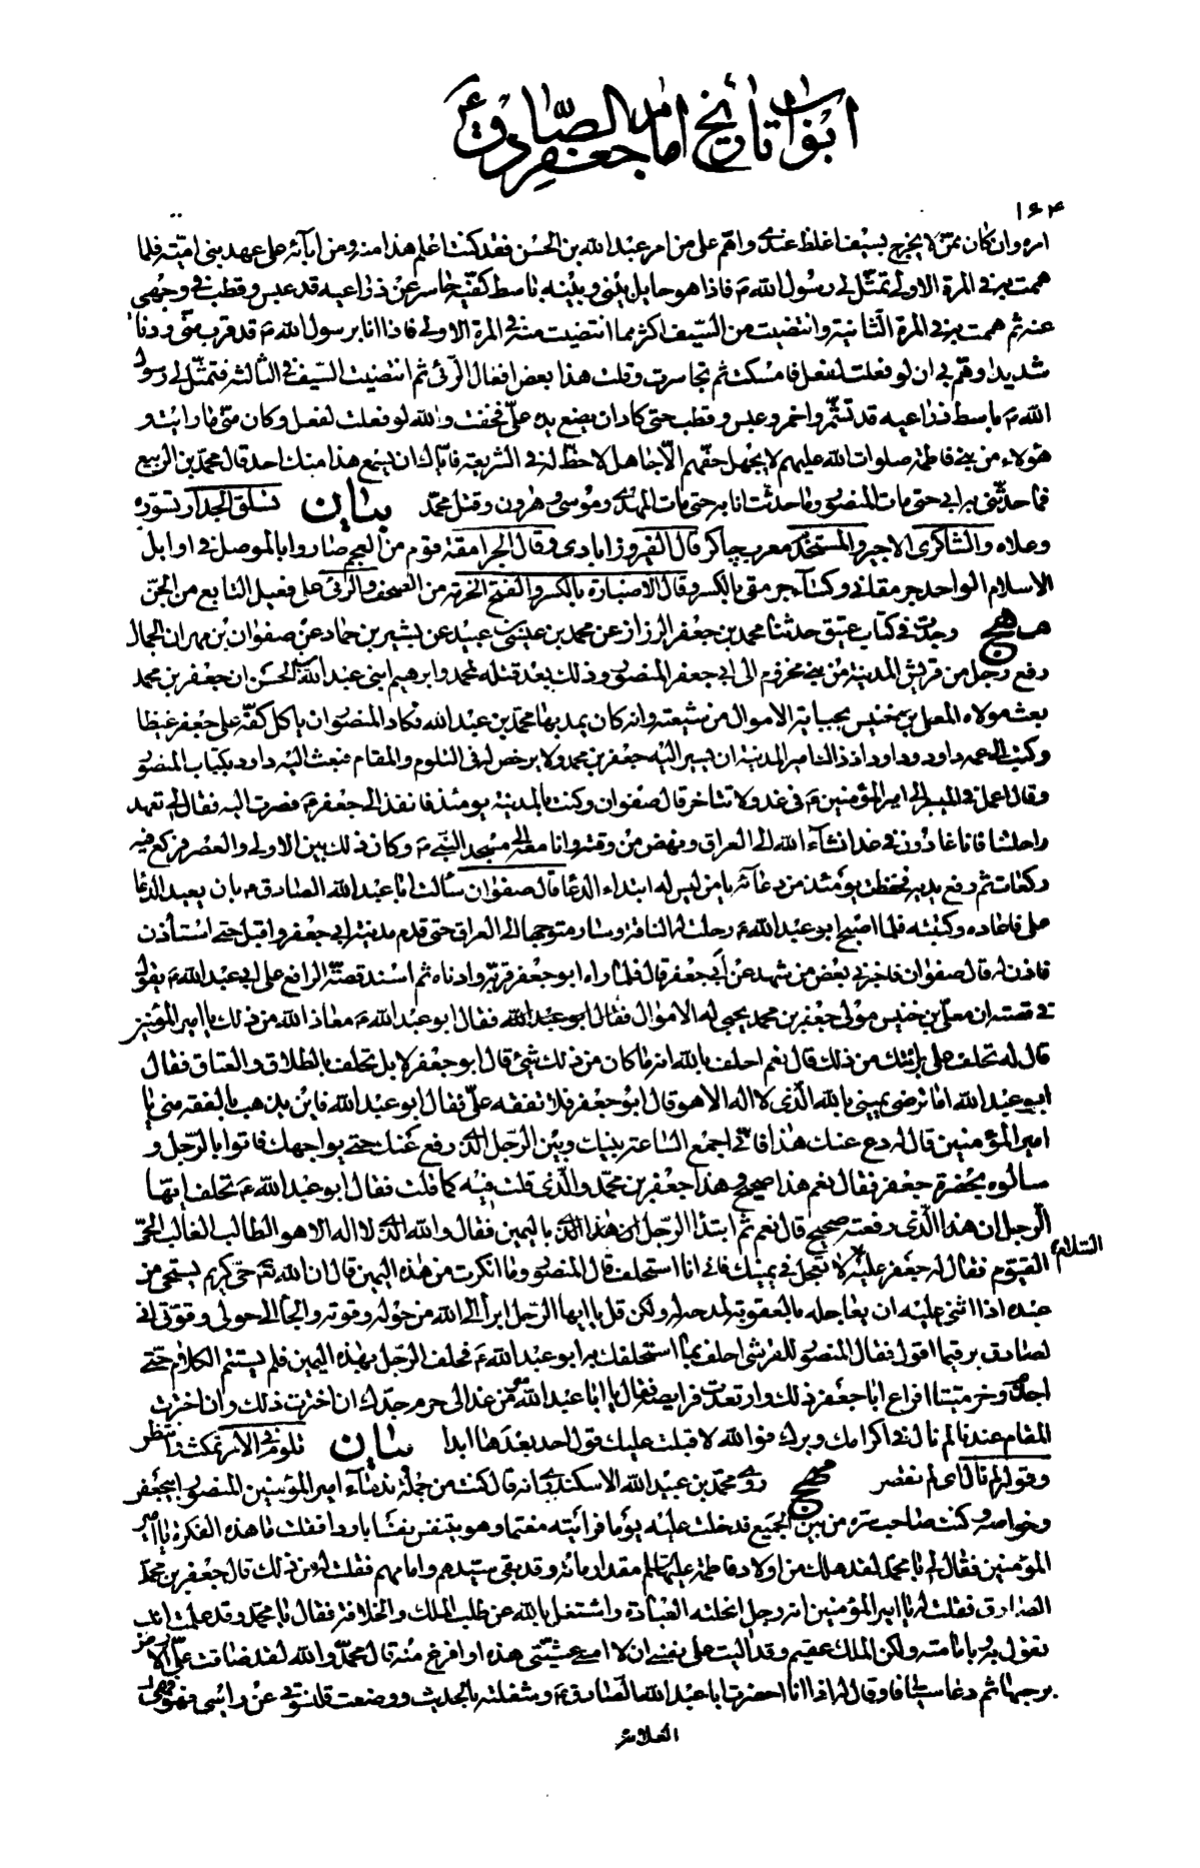 ابواب تاريخ امام جعفر الصادق ع
١٦٤
امره وان كان ممن لا يخرج بسيف اغلظ عندى واهم على من امر عبد الله بن الحسن فقد كنت اعلم هذا منه ومن ابائه على عهد بنى امية فلما
هممت به فى المرة الاولى تمثل لى رسول الله ص فاذا هو حايل بينى وبينه باسط كفيه حاسر عن ذراعيه قد عبس وقطب فى وجهى
عنه ثم هممت به فى المرة الثانية وانتضيت من السيف اكثر مما انتضيت منه فى المرة الاولى فاذا انا برسول الله ص قد قرب منى ودنا
شديدا وهم بى ان لو فعلت لفعل فامسكت ثم تجاسرت وقلت هذا بعض افعال الرئى ثم انتضيت السيف فى الثالثة فتمثل لى رسول
الله ص باسط ذراعيه قد تشمر واحمر وعبس وقطب حتى كاد ان يضع يده على فخفت والله لو فعلت لفعل وكان منى ما رايت و
هؤلاء من بنى فاطمة صلوات الله عليهم لا يجهل حقهم الا جاهل لا حظ له فى الشريعة فاياك ان يسمع هذا منك احد قال محمد بن الربيع
فما حدثنى به ابى حتى مات المنصور وما حدثت انا به حتى مات المهدى وموسى وهرون وقتل محمد بيان تسلق الجدار تسوره
وعلاه والشاكرى الاجير والمستخدم معرب چاكر قال الفيروزابادى وقال الجرامقة قوم من العجم صاروا بالموصل فى اوايل
الاسلام الواحد جرمقانى وكساء جرمقى بالكسر وقال الاضبارة بالكسر والفتح الحزمة من الصحف والرئى على فعيل التابع من الجن
مهج وجدت فى كتاب عتيق حدثنا محمد بن جعفر الرزاز عن محمد بن عيسى بن عبيد عن بشير بن حماد عن صفوان بن مهران الجمال
رفع رجل من قريش المدينة من بنى مخزوم الى ابى جعفر المنصور وذلك بعد قتله لمحمد وابرهيم ابنى عبد الله بن الحسن ان جعفر بن محمد
بعث مولاه المعلى بن خنيس بجباية الاموال من شيعته وانه كان يمد بها محمد بن عبد الله فكاد المنصور ان ياكل كفه على جعفر غيظا
وكتب الى عمه داود وداود اذ ذاك امير المدينة ان يسير اليه جعفر بن محمد ولا يرخص له فى التلوم والمقام فبعث اليه داود بكتاب المنصور
وقال اعمل فى المسير الى امير المؤمنين فى غد ولا تتاخر قال صفوان وكنت بالمدينة يومئذ فانفذ الى جعفر ع فصرت اليه فقال لى تعهد
راحلتنا فانا غادون فى غد انشاء الله الى العراق ونهض من وقته وانا معه الى مسجد النبى ص وكان ذلك بين الاولى والعصر فركع فيه
ركعات ثم رفع يديه فحفظت يومئذ من دعائه يا من ليس له ابتداء الدعا قال صفوان سالت ابا عبد الله الصادق ع بان يعيد الدعا
على فاعاده وكتبته فلما اصبح ابو عبد الله ع رحلت له الناقة وسار متوجها الى العراق حتى قدم مدينة ابى جعفر واقبل حتى استاذن
فاذن له قال صفوان فاخبرنى بعض من شهد عن ابى جعفر قال فلما راه ابو جعفر قربه وادناه ثم اسند قصة الرافع على ابى عبد الله ع يقول
فى قصته ان معلى بن خنيس مولى جعفر بن محمد يجبى له الاموال فقال ابو عبد الله فقال ابو عبد الله ع معاذ الله من ذلك يا امير المؤمنين
قال له تحلف على برائتك من ذلك قال نعم احلف بالله انه ما كان من ذلك شئ قال ابو جعفر لا بل تحلف بالطلاق والعتاق فقال
ابو عبد الله اما ترضى يمينى بالله الذى لا اله الا هو قال ابو جعفر فلا تفقه على فقال ابو عبد الله فاين يذهب بالفقه منى يا
امير المؤمنين قال له دع عنك هذا فانى اجمع الساعة بينك وبين الرجل الذى رفع عنك حتى يواجهك فاتوا بالرجل و
سالوه بحضرة جعفر فقال نعم هذا صحيح وهذا جعفر بن محمد والذى قلت فيه كما قلت فقال ابو عبد الله ع تحلف ايها
الرجل ان هذا الذى رفعته صحيح قال نعم ثم ابتدا الرجل باليمين فقال والله الذى لا اله الا هو الطالب الغالب الحى
القيوم فقال له جعفر عليه السلام لا تعجل فى يمينك فانى انا استحلف قال المنصور وما انكرت من هذه اليمين قال ان الله تعالى حى كريم يستحيى من
عبده اذا اثنى عليه ان يعاجله بالعقوبة لمدحه له ولكن قل يا ايها الرجل ابرا الى الله من حوله وقوته والجا الى حولى وقوتى انى
لصادق بر فيما اقول فقال المنصور للقرشى احلف بما استحلفك به ابو عبد الله ع فحلف الرجل بهذه اليمين فلم يستتم الكلام حتى
اجذم وخر ميتا افراع ابا جعفر ذلك وارتعدت فرايصه فقال يا ابا عبد الله سر من غد الى حرم جدك ان اخترت ذلك وان اخترت
المقام عندنا لم نال فى اكرامك وبرك فوالله لا قبلت عليك قول احد بعدها ابدا بيان تلوم فى الامر تمكث وانتظر
وقوله لم نال اى لم نقصر مهج روى محمد بن عبيد الله الاسكندرى انه قال كنت من جملة ندماء امير المؤمنين المنصور ابى جعفر
وخواصه وكنت صاحب سره من بين الجميع فدخلت عليه يوما فرايته مغتما وهو يتنفس نفسا باردا فقلت ما هذه الفكرة يا امير
المؤمنين فقال لى يا محمد لقد هلك من اولاد فاطمة عليها السلم مقدار مائة وقد بقى سيدهم وامامهم فقلت له من ذلك قال جعفر بن محمد
الصادق فقلت له يا امير المؤمنين انه رجل انحلته العبادة واشتغل بالله عن طلب الملك والخلافة فقال يا محمد وقد علمت انك
تقول به وبامامته ولكن الملك عقيم وقد اليت على نفسى ان لا امسى عشيتى هذه او افرغ منه قال محمد والله لقد ضاقت على الارض
برحبها ثم دعا سيافا وقال له اذا انا احضرت ابا عبد الله الصادق ع وشغلته بالحديث ووضعت قلنسوتى عن راسى فهو
العلامة